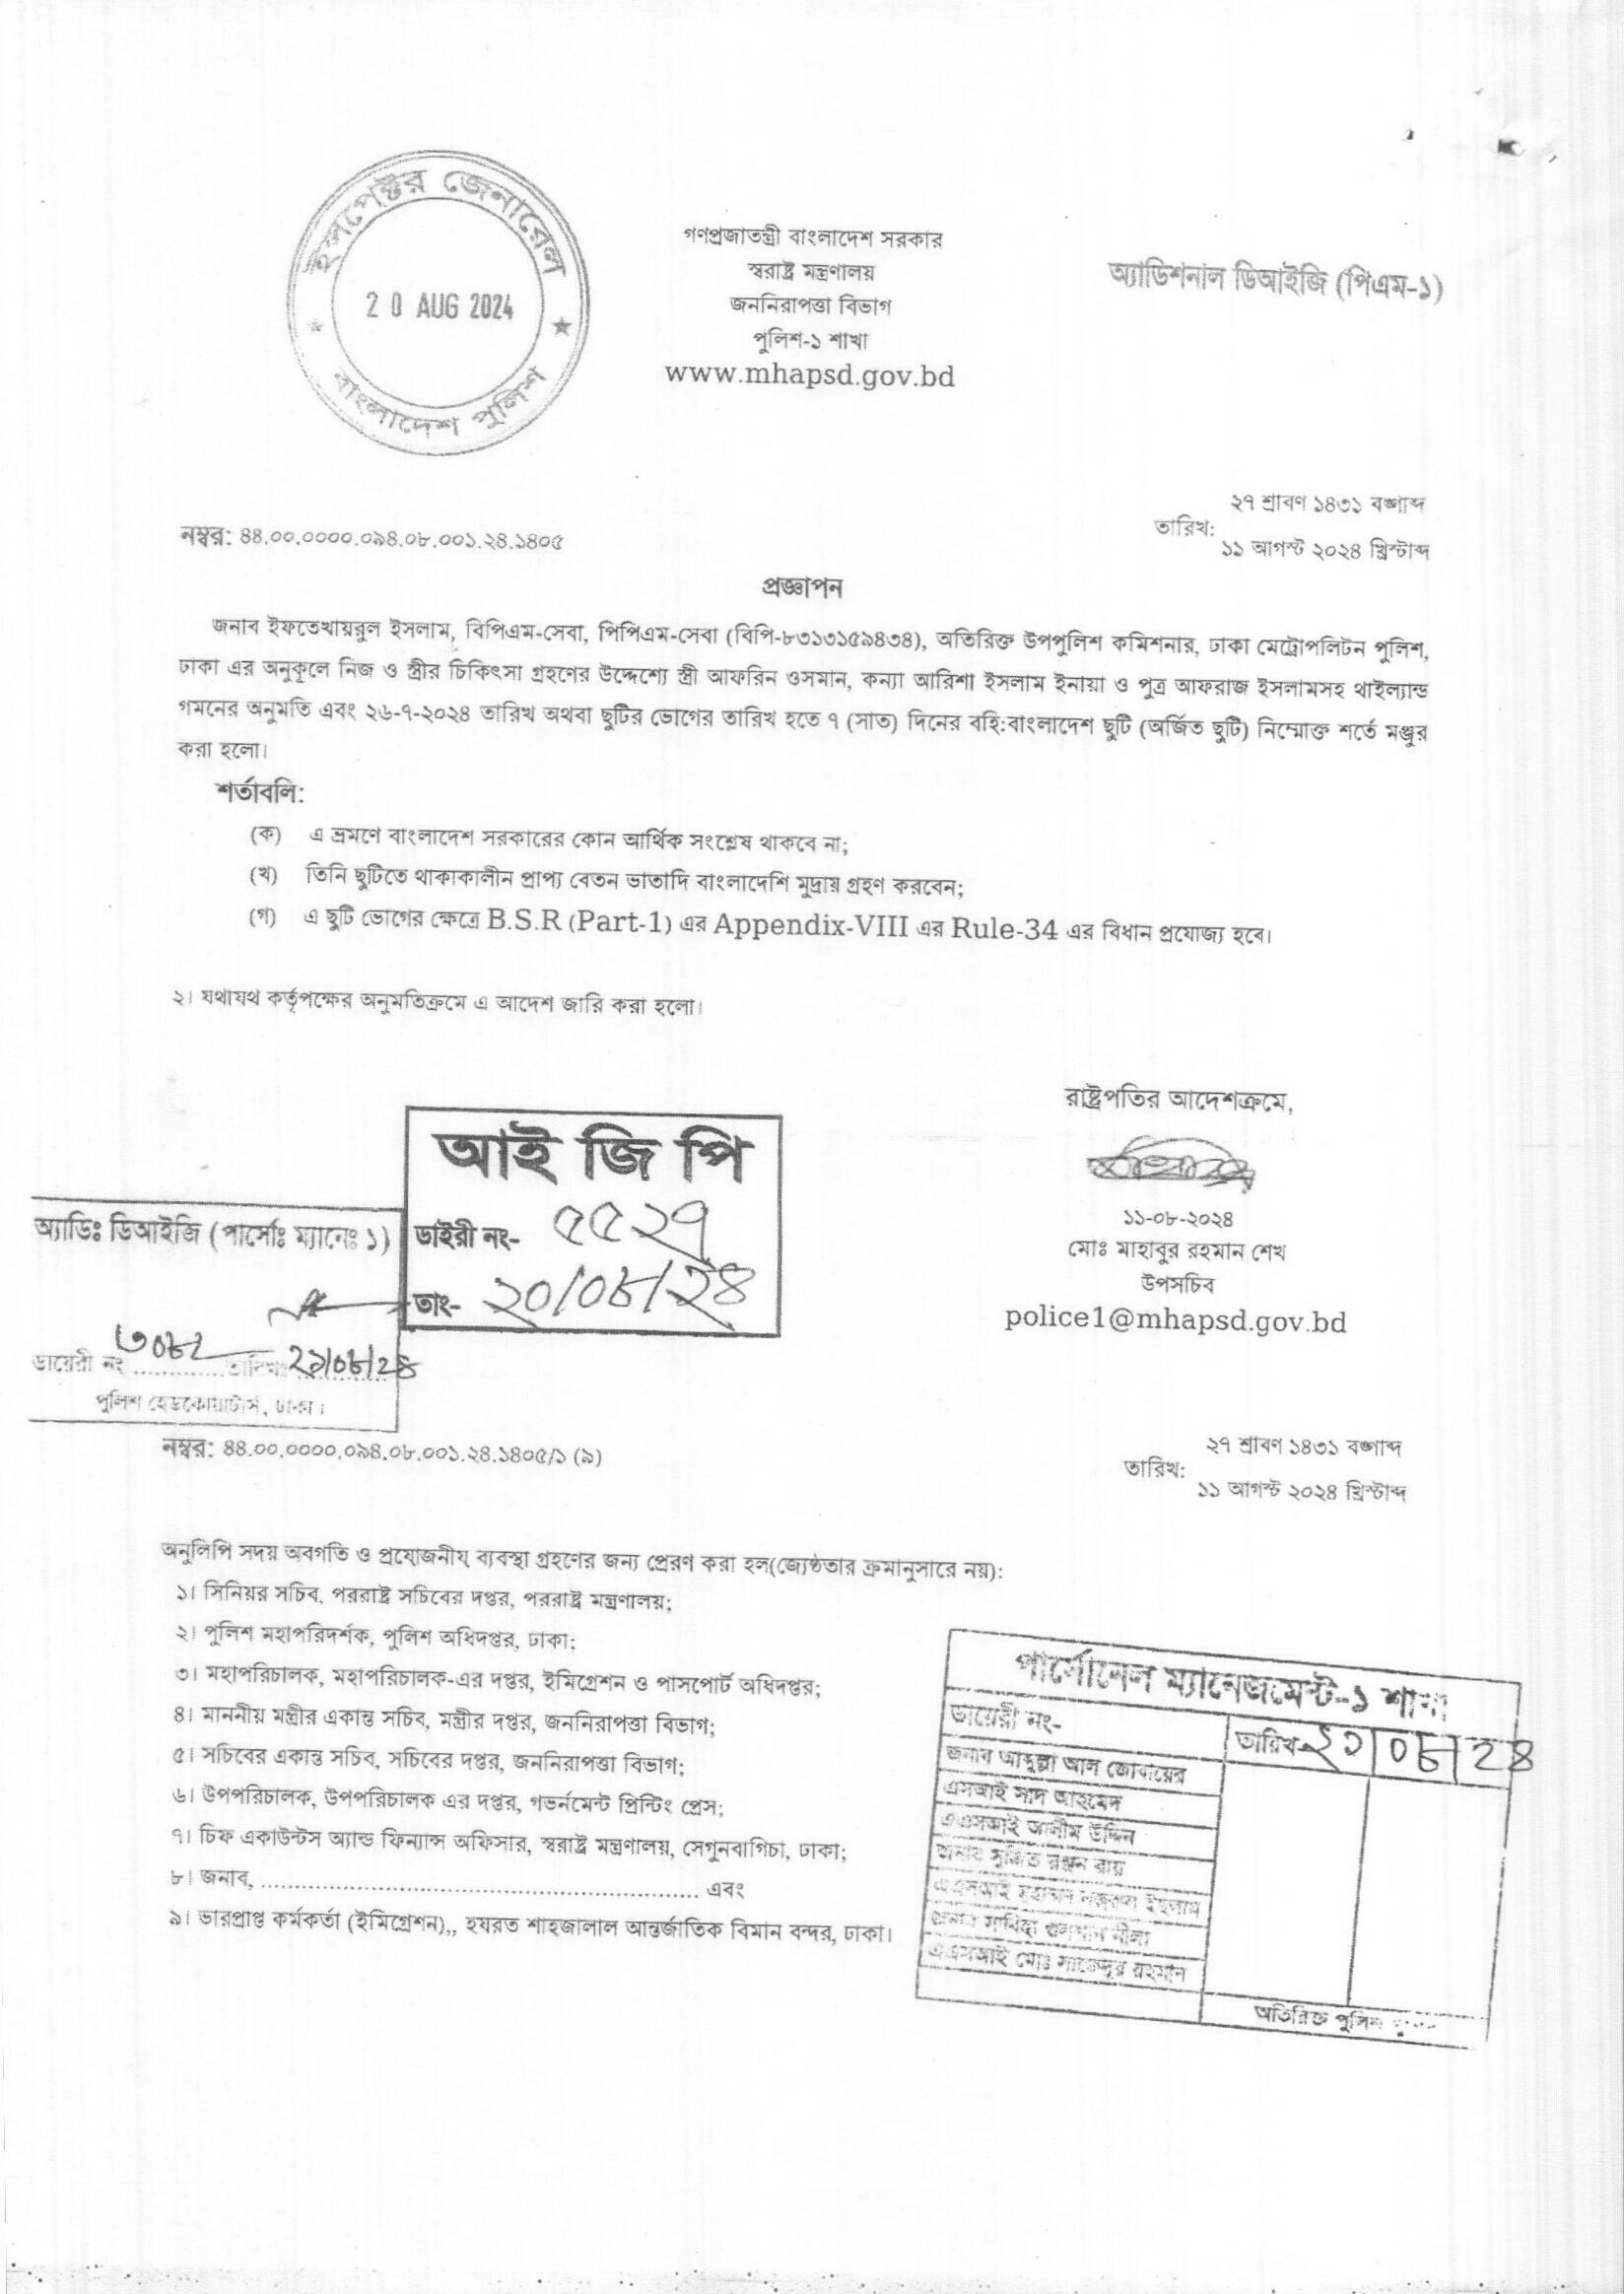 ইন্সপেক্টর জেনারেল
20 AUG 2024
বাংলাদেশ পুলিশ
গণপ্রজাতন্ত্রী বাংলাদেশ সরকার
স্বরাষ্ট্র মন্ত্রণালয়
জননিরাপত্তা বিভাগ
পুলিশ-১ শাখা
www.mhapsd.gov.bd
অ্যাডিশনাল ডিআইজি (পিএম-১)
নম্বর: ৪৪.০০.০০০০.০৯৪.০৮.০০১.২৪.১৪০৫
২৭ শ্রাবণ ১৪৩১ বঙ্গাব্দ
তারিখ:
১১ আগস্ট ২০২৪ খ্রিস্টাব্দ
প্রজ্ঞাপন
জনাব ইফতেখায়রুল ইসলাম, বিপিএম-সেবা, পিপিএম-সেবা (বিপি-৮৩১৩১৫৯৪৩৪), অতিরিক্ত উপপুলিশ কমিশনার, ঢাকা মেট্রোপলিটন পুলিশ,
ঢাকা এর অনুকূলে নিজ ও স্ত্রীর চিকিৎসা গ্রহণের উদ্দেশ্যে স্ত্রী আফরিন ওসমান, কন্যা আরিশা ইসলাম ইনায়া ও পুত্র আফরাজ ইসলামসহ থাইল্যান্ড
গমনের অনুমতি এবং ২৬-৭-২০২৪ তারিখ অথবা ছুটির ভোগের তারিখ হতে ৭ (সাত) দিনের বহি:বাংলাদেশ ছুটি (অর্জিত ছুটি) নিম্মোক্ত শর্তে মঞ্জুর
করা হলো।
শর্তাবলি:
(ক) এ ভ্রমণে বাংলাদেশ সরকারের কোন আর্থিক সংশ্লেষ থাকবে না;
(খ) তিনি ছুটিতে থাকাকালীন প্রাপ্য বেতন ভাতাদি বাংলাদেশি মুদ্রায় গ্রহণ করবেন;
(গ) এ ছুটি ভোগের ক্ষেত্রে B.S.R (Part-1) এর Appendix-VIII এর Rule-34 এর বিধান প্রযোজ্য হবে।
২। যথাযথ কর্তৃপক্ষের অনুমতিক্রমে এ আদেশ জারি করা হলো।
রাষ্ট্রপতির আদেশক্রমে,
১১-০৮-২০২৪
মোঃ মাহাবুর রহমান শেখ
উপসচিব
police1@mhapsd.gov.bd
আই জি পি
ডাইরী নং- ৫৫২৭
তাং- ২০/০৮/২৪
অ্যাডিঃ ডিআইজি (পার্সোঃ ম্যানেঃ ১)
ডায়েরী নং ৩০৮২ তারিখঃ ২১/০৮/২৪
পুলিশ হেডকোয়ার্টার্স, ঢাকা।
নম্বর: ৪৪.০০.০০০০.০৯৪.০৮.০০১.২৪.১৪০৫/১ (৯)
২৭ শ্রাবণ ১৪৩১ বঙ্গাব্দ
তারিখ:
১১ আগস্ট ২০২৪ খ্রিস্টাব্দ
অনুলিপি সদয় অবগতি ও প্রয়োজনীয় ব্যবস্থা গ্রহণের জন্য প্রেরণ করা হল(জ্যেষ্ঠতার ক্রমানুসারে নয়):
১। সিনিয়র সচিব, পররাষ্ট্র সচিবের দপ্তর, পররাষ্ট্র মন্ত্রণালয়;
২। পুলিশ মহাপরিদর্শক, পুলিশ অধিদপ্তর, ঢাকা;
৩। মহাপরিচালক, মহাপরিচালক-এর দপ্তর, ইমিগ্রেশন ও পাসপোর্ট অধিদপ্তর;
৪। মাননীয় মন্ত্রীর একান্ত সচিব, মন্ত্রীর দপ্তর, জননিরাপত্তা বিভাগ;
৫। সচিবের একান্ত সচিব, সচিবের দপ্তর, জননিরাপত্তা বিভাগ;
৬। উপপরিচালক, উপপরিচালক এর দপ্তর, গভর্নমেন্ট প্রিন্টিং প্রেস;
৭। চিফ একাউন্টস অ্যান্ড ফিন্যান্স অফিসার, স্বরাষ্ট্র মন্ত্রণালয়, সেগুনবাগিচা, ঢাকা;
৮। জনাব, ........................................................................ এবং
৯। ভারপ্রাপ্ত কর্মকর্তা (ইমিগ্রেশন),, হযরত শাহজালাল আন্তর্জাতিক বিমান বন্দর, ঢাকা।
পার্সোনেল ম্যানেজমেন্ট-১ শাখা
ডায়েরী নং-
তারিখ- ২১/০৮/২৪
জনাব আব্দুল্লা আল জোবায়ের
এসআই সাদ আহমেদ
এএসআই আলীম উদ্দিন
জনাব সুজিত রঞ্জন রায়
এএসআই ইসলাম
জনাব নীলা
এএসআই মোঃ রহমান
অতিরিক্ত পুলিশ